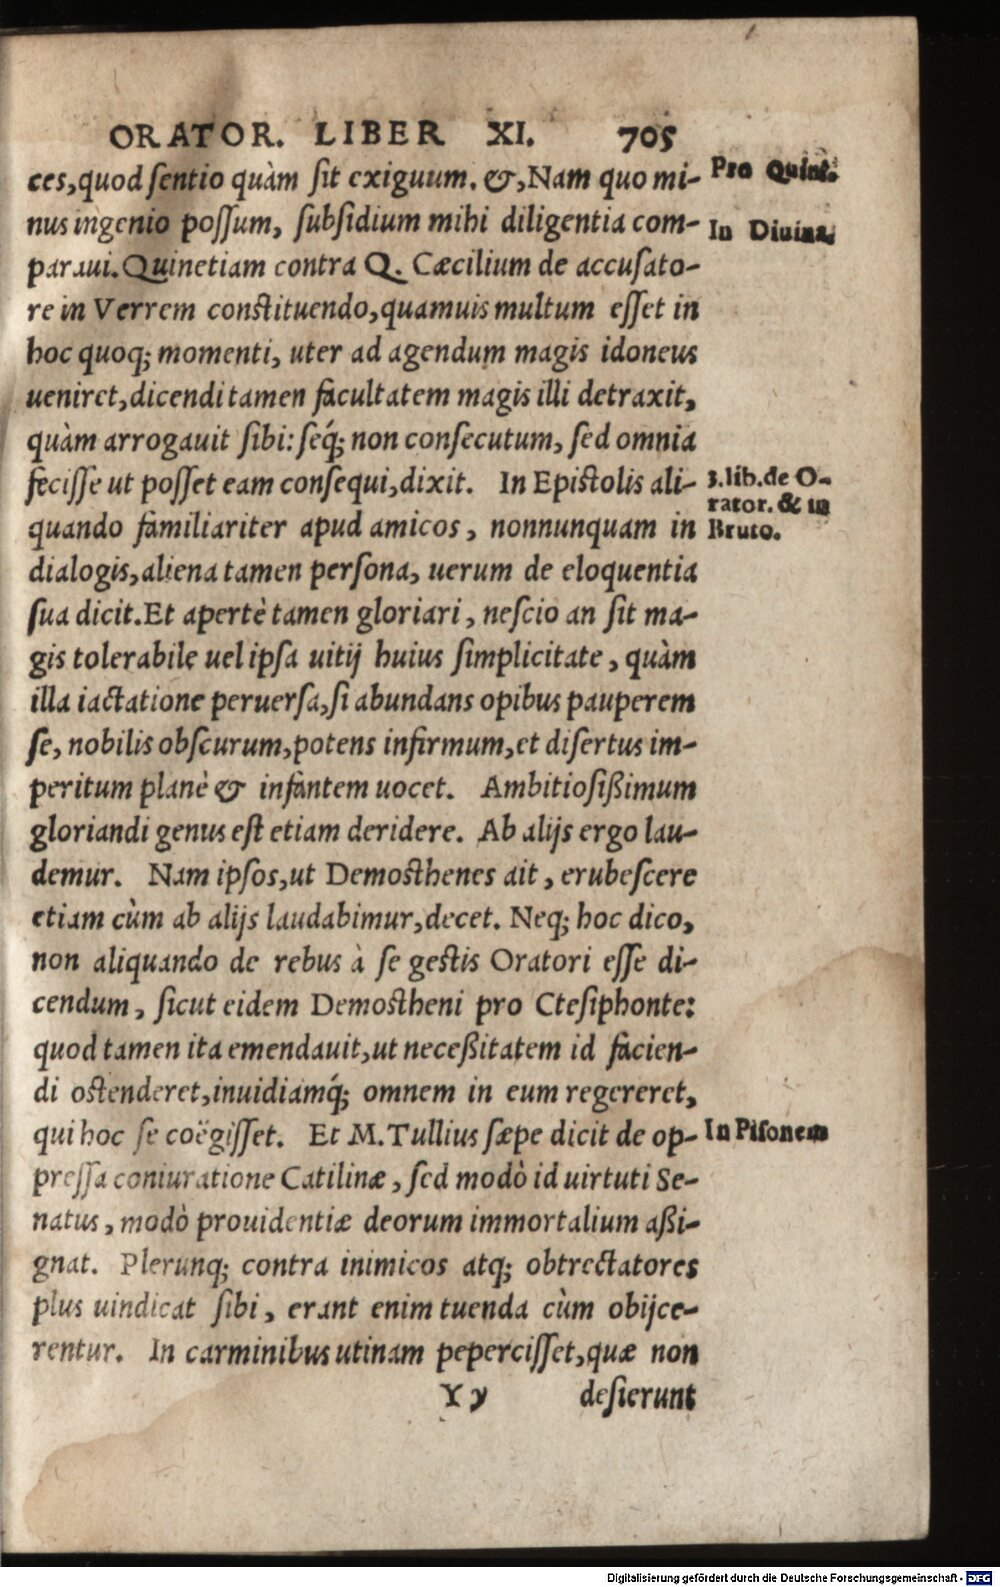 ORATOR. LIBER XI. 705
ces,quod sentio quàm sit exiguum. &,Nam quo mi-
Pro Quint.
nus ingenio possum, subsidium mihi diligentia com-
In Diuina.
paraui. Quinetiam contra Q. Cæcilium de accusato-
re in Verrem constituendo,quamuis multum esset in
hoc quoq; momenti, uter ad agendum magis idoneus
ueniret,dicendi tamen facultatem magis illi detraxit,
quàm arrogauit sibi: seq́; non consecutum, sed omnia
fecisse ut posset eam consequi,dixit. In Epistolis ali-
3.lib.de O-
rator. & in
Bruto.
quando familiariter apud amicos, nonnunquam in
dialogis,aliena tamen persona, uerum de eloquentia
sua dicit.Et apertè tamen gloriari, nescio an sit ma-
gis tolerabile uel ipsa uitij huius simplicitate, quàm
illa iactatione peruersa,si abundans opibus pauperem
se, nobilis obscurum,potens infirmum,et disertus im-
peritum planè & infantem uocet. Ambitiosißimum
gloriandi genus est etiam deridere. Ab alijs ergo lau-
demur. Nam ipsos,ut Demosthenes ait, erubescere
etiam cùm ab alijs laudabimur,decet. Neq; hoc dico,
non aliquando de rebus à se gestis Oratori esse di-
cendum, sicut eidem Demostheni pro Ctesiphonte:
quod tamen ita emendauit,ut neceßitatem id facien-
di ostenderet,inuidiamq́; omnem in eum regereret,
qui hoc se coëgisset. Et M.Tullius sæpe dicit de op-
In Pisonem
pressa coniuratione Catilinæ, sed modò id uirtuti Se-
natus, modò prouidentiæ deorum immortalium aßi-
gnat. Plerunq; contra inimicos atq; obtrectatores
plus uindicat sibi, erant enim tuenda cùm obijce-
rentur. In carminibus utinam pepercisset,quæ non
Yy desierunt
Digitalisierung gefördert durch die Deutsche Forschungsgemeinschaft - DFG